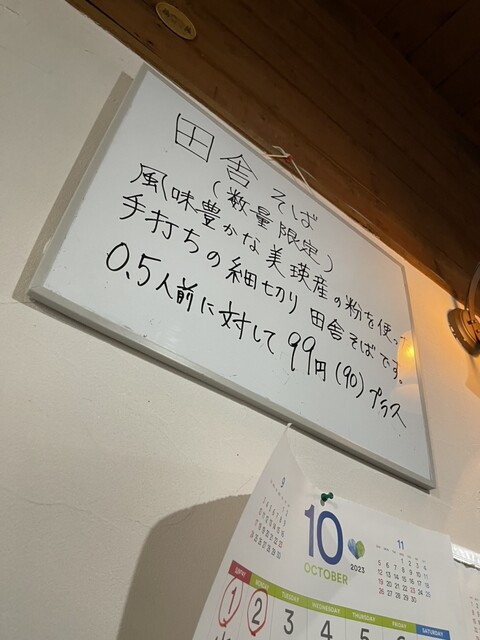 田舎そば
(数量限定)
風味豊かな美瑛産の粉を使っ
手打ちの細切り 田舎そばです。
0.5人前に対して 99円(90)プラス
9
10
OCTOBER
2023
11
MONDAY TUESDAY WEDNESDAY THURSDAY FRIDAY SATURDAY
1 2 3 4 5